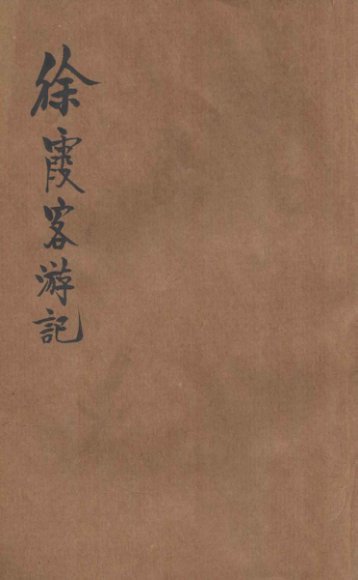 徐霞客游記